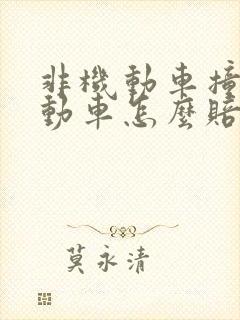 非機動車撞
動車怎麼賠
莫永清